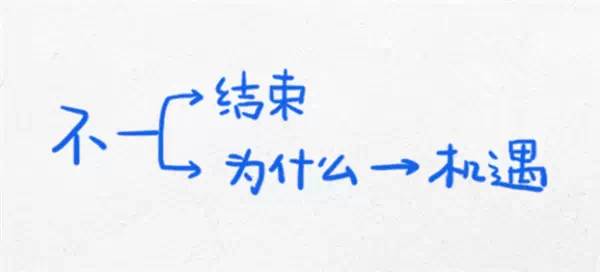 不
结束
为什么 → 机遇